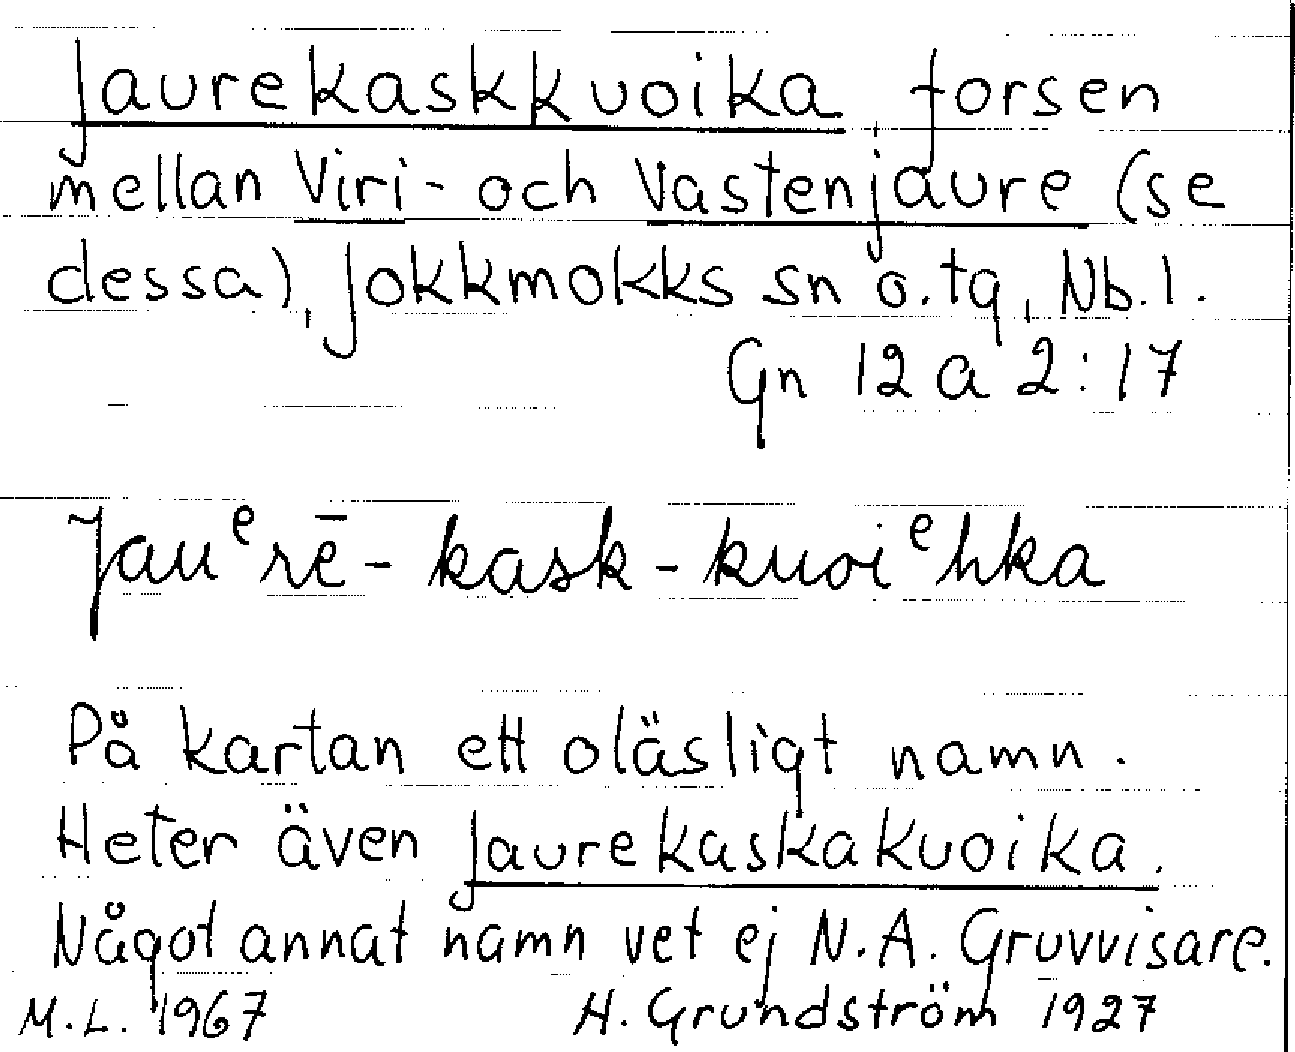 Jaurekaskkuoika forsen
mellan Viri- och Vastenjaure (se
dessa), Jokkmokks sn o. tg, Nb. l.
Gn 12 a 2:17
Jauᵉrē-kask-kuoiᵉhka
På kartan ett oläsligt namn.
Heter även Jaurekaskakuoika.
Något annat namn vet ej N.A. Gruvvisare.
M.L. 1967 H. Grundström 1927